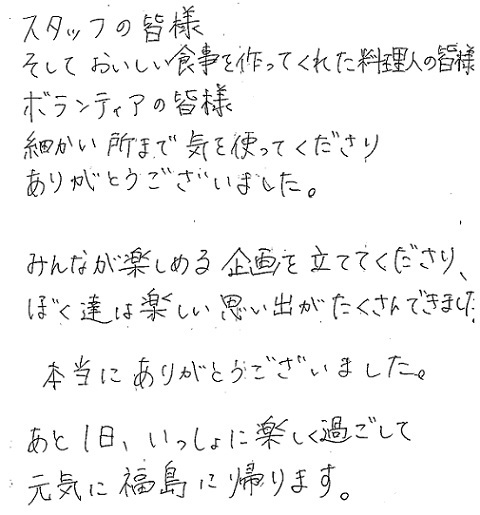 スタッフの皆様
そして おいしい食事を作ってくれた料理人の皆様
ボランティアの皆様
細かい所まで気を使ってくださり
ありがとうございました。
みんなが楽しめる企画を立ててくださり、
ぼく達は楽しい思い出がたくさんできました
本当にありがとうございました。
あと1日、いっしょに楽しく過ごして
元気に福島に帰ります。